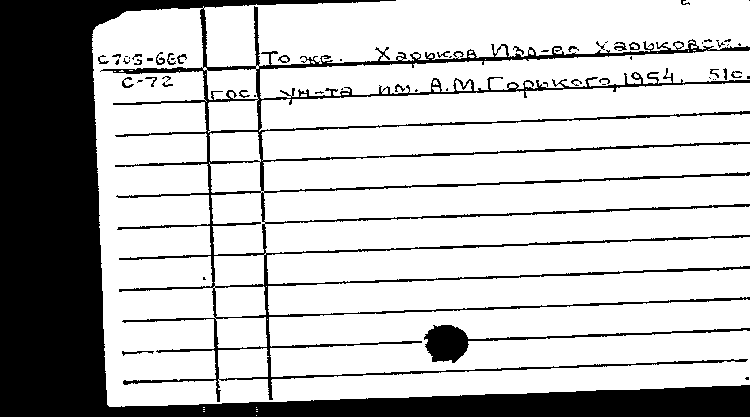 С705-660 То же. Харьков, Изд-во Харьковск.
С-72 гос. ун-та им. А.М.Горького, 1954. 51с.